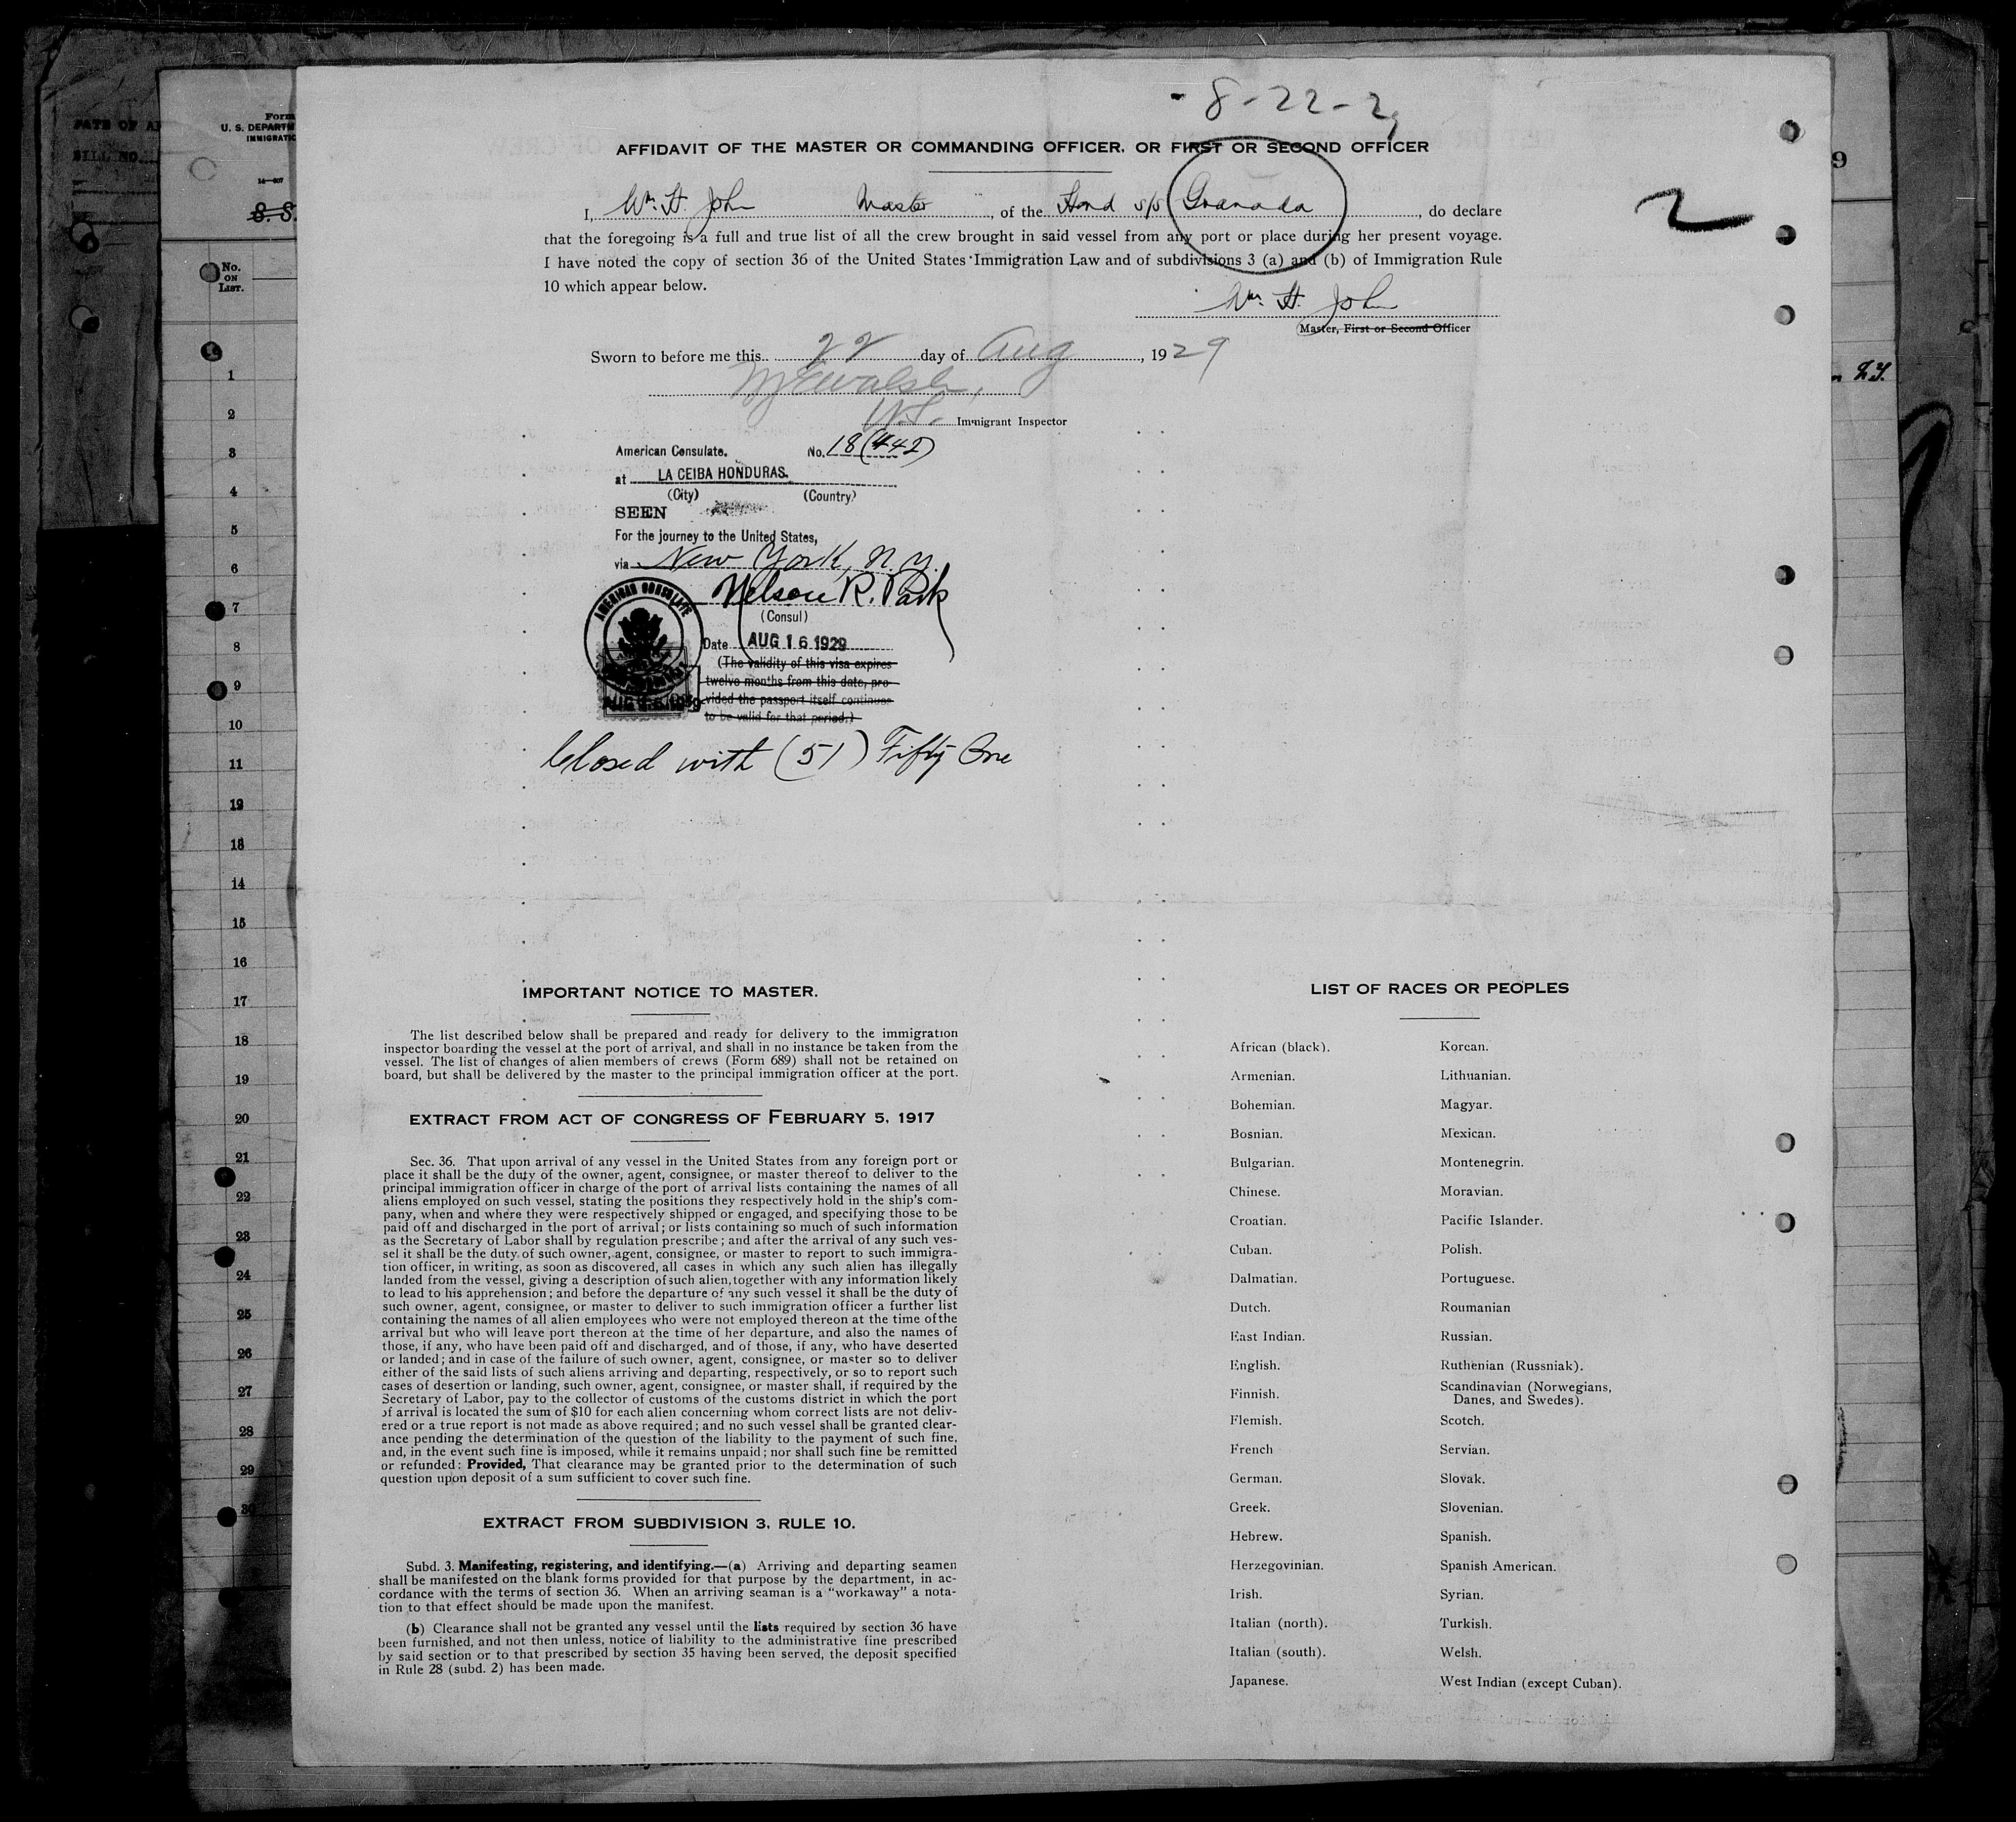 DATE OF
BILL NO.
Form
U. S. DEPARTM
IMMIGRATIO
S. S.
No.
ON
LIST.
1
2
3
4
5
6
7
8
9
10
11
12
13
14
15
16
17
18
19
20
21
22
23
24
25
26
27
28
29
30
- 8-22-29
2
9
AFFIDAVIT OF THE MASTER OR COMMANDING OFFICER, OR FIRST OR SECOND OFFICER
I, Wm. H. John Master, of the Hond s/s Granada, do declare
that the foregoing is a full and true list of all the crew brought in said vessel from any port or place during her present voyage.
I have noted the copy of section 36 of the United States Immigration Law and of subdivisions 3 (a) and (b) of Immigration Rule
10 which appear below.
Wm. H. John
Master, First or Second Officer
Sworn to before me this 22 day of Aug, 1929
U.S. Immigrant Inspector
American Consulate. No. 18(442)
at LA CEIBA HONDURAS.
(City) (Country)
SEEN
For the journey to the United States,
via New York, N.Y.
Nelson R. Park
(Consul)
AMERICAN CONSULATE
Date AUG 16 1929
(The validity of this visa expires
twelve months from this date, pro-
vided the passport itself continues
to be valid for that period.)
Closed with (51) Fifty One
IMPORTANT NOTICE TO MASTER.
The list described below shall be prepared and ready for delivery to the immigration
inspector boarding the vessel at the port of arrival, and shall in no instance be taken from the
vessel. The list of changes of alien members of crews (Form 689) shall not be retained on
board, but shall be delivered by the master to the principal immigration officer at the port.
EXTRACT FROM ACT OF CONGRESS OF FEBRUARY 5, 1917
Sec. 36. That upon arrival of any vessel in the United States from any foreign port or
place it shall be the duty of the owner, agent, consignee, or master thereof to deliver to the
principal immigration officer in charge of the port of arrival lists containing the names of all
aliens employed on such vessel, stating the positions they respectively hold in the ship's com-
pany, when and where they were respectively shipped or engaged, and specifying those to be
paid off and discharged in the port of arrival; or lists containing so much of such information
as the Secretary of Labor shall by regulation prescribe; and after the arrival of any such ves-
sel it shall be the duty of such owner, agent, consignee, or master to report to such immigra-
tion officer, in writing, as soon as discovered, all cases in which any such alien has illegally
landed from the vessel, giving a description of such alien, together with any information likely
to lead to his apprehension; and before the departure of any such vessel it shall be the duty of
such owner, agent, consignee, or master to deliver to such immigration officer a further list
containing the names of all alien employees who were not employed thereon at the time of the
arrival but who will leave port thereon at the time of her departure, and also the names of
those, if any, who have been paid off and discharged, and of those, if any, who have deserted
or landed; and in case of the failure of such owner, agent, consignee, or master so to deliver
either of the said lists of such aliens arriving and departing, respectively, or so to report such
cases of desertion or landing, such owner, agent, consignee, or master shall, if required by the
Secretary of Labor, pay to the collector of customs of the customs district in which the port
of arrival is located the sum of $10 for each alien concerning whom correct lists are not deliv-
ered or a true report is not made as above required; and no such vessel shall be granted clear-
ance pending the determination of the question of the liability to the payment of such fine,
and, in the event such fine is imposed, while it remains unpaid; nor shall such fine be remitted
or refunded: Provided, That clearance may be granted prior to the determination of such
question upon deposit of a sum sufficient to cover such fine.
EXTRACT FROM SUBDIVISION 3, RULE 10.
Subd. 3. Manifesting, registering, and identifying.—(a) Arriving and departing seamen
shall be manifested on the blank forms provided for that purpose by the department, in ac-
cordance with the terms of section 36. When an arriving seaman is a "workaway" a nota-
tion to that effect should be made upon the manifest.
(b) Clearance shall not be granted any vessel until the lists required by section 36 have
been furnished, and not then unless, notice of liability to the administrative fine prescribed
by said section or to that prescribed by section 35 having been served, the deposit specified
in Rule 28 (subd. 2) has been made.
LIST OF RACES OR PEOPLES
African (black).
Armenian.
Bohemian.
Bosnian.
Bulgarian.
Chinese.
Croatian.
Cuban.
Dalmatian.
Dutch.
East Indian.
English.
Finnish.
Flemish.
French
German.
Greek.
Hebrew.
Herzegovinian.
Irish.
Italian (north).
Italian (south).
Japanese.
Korean.
Lithuanian.
Magyar.
Mexican.
Montenegrin.
Moravian.
Pacific Islander.
Polish.
Portuguese.
Roumanian
Russian.
Ruthenian (Russniak).
Scandinavian (Norwegians,
Danes, and Swedes).
Scotch.
Servian.
Slovak.
Slovenian.
Spanish.
Spanish American.
Syrian.
Turkish.
Welsh.
West Indian (except Cuban).